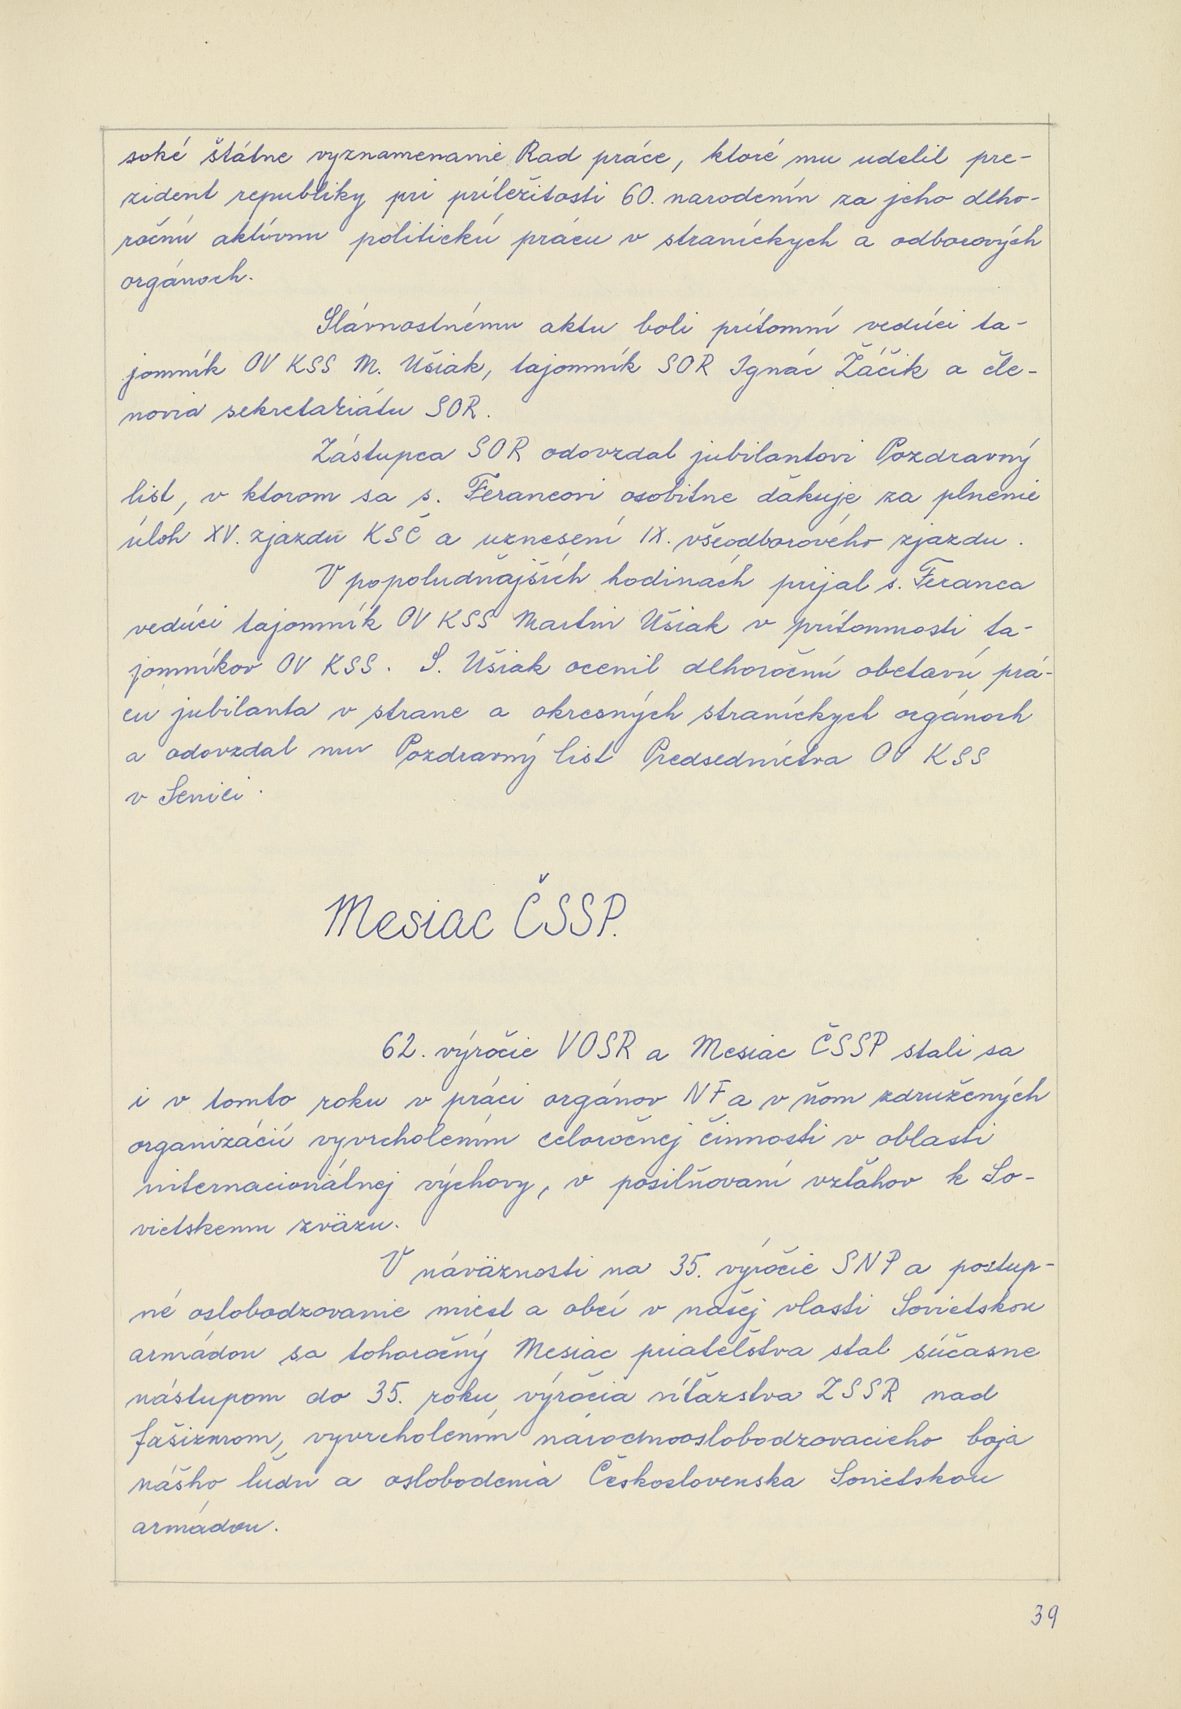 soké štátne vyznamenanie Rad práce, ktoré mu udelil pre-
zident republiky pri príležitosti 60. narodenín za jeho dlho-
ročnú aktívnu politickú prácu v straníckych a odborových
orgánoch.
Slávnostnému aktu boli prítomní vedúci ta-
jomník OV KSS M. Ušiak, tajomník SOR Ignác Žáčik a čle-
novia sekretariátu SOR.
Zástupca SOR odovzdal jubilantovi Pozdravný
list, v ktorom sa s. Ferancovi osobitne ďakuje za plnenie
úloh XV. zjazdu KSČ a uznesení IX. všeodborového zjazdu.
V popoludňajších hodinách prijal s. Feranca
vedúci tajomník OV KSS Martin Ušiak v prítomnosti ta-
jomníkov OV KSS. S. Ušiak ocenil dlhoročnú obetavú prá-
cu jubilanta v strane a okresných straníckych orgánoch
a odovzdal mu Pozdravný list Predsedníctva OV KSS
v Senici.
Mesiac ČSSP.
62. výročie VOSR a Mesiac ČSSP stali sa
i v tomto roku v práci orgánov NF a v ňom združených
organizácií vyvrcholením celoročnej činnosti v oblasti
internacionálnej výchovy, v posilňovaní vzťahov k So-
vietskemu zväzu.
V náväznosti na 35. výročie SNP a postup-
né oslobodzovanie miest a obcí v našej vlasti Sovietskou
armádou sa tohoročný Mesiac priateľstva stal súčasne
nástupom do 35. roku výročia víťazstva ZSSR nad
fašizmom, vyvrcholením národnooslobodzovacieho boja
nášho ľudu a oslobodenia Československa Sovietskou
armádou.
39